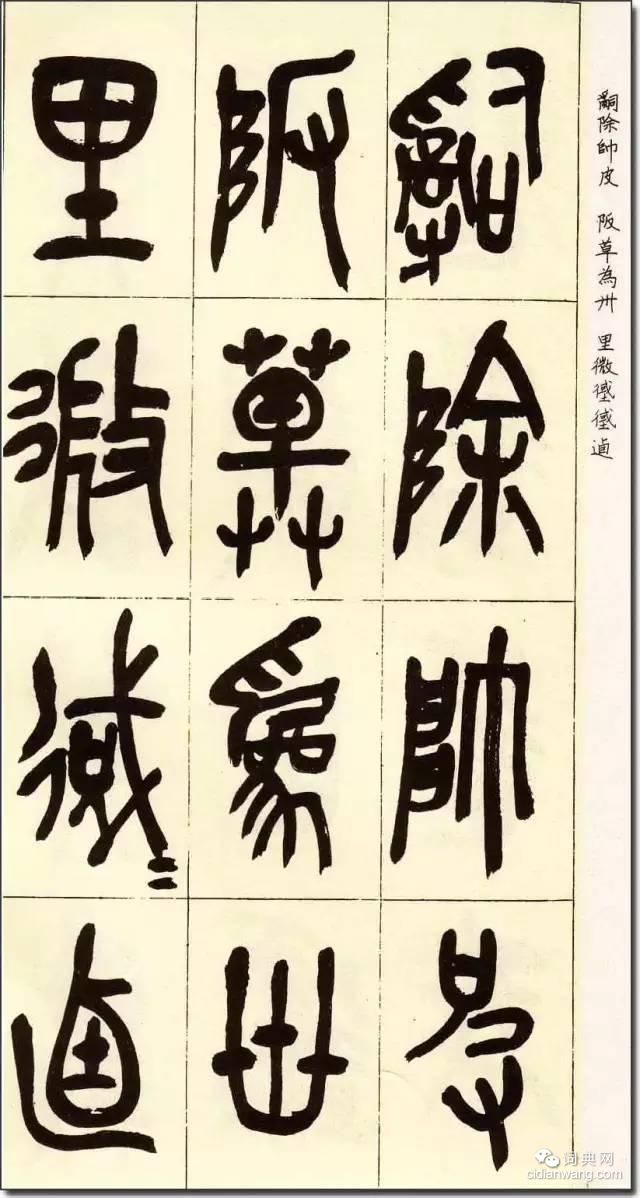 嗣除帥皮 阪草為卅 里微逌
嗣除帥皮
阪草為卅
里微逌
词典网
cidianwang.com